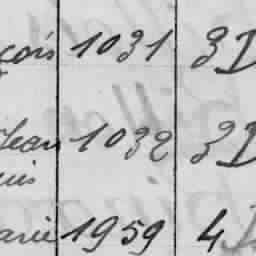 çois 1031 3D
Jean 1032 3D
uis
arie 1959 4